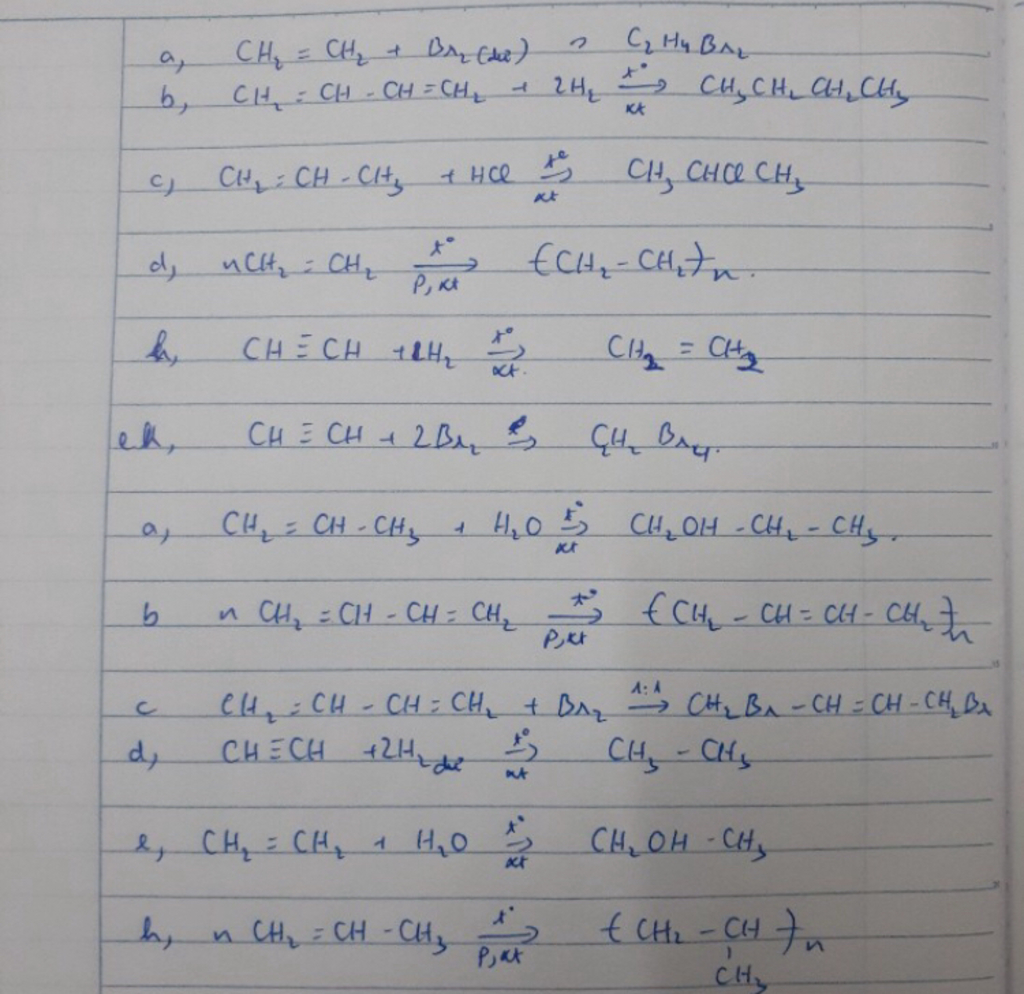 a, CH₂ = CH₂ + Br₂ (dư) → C₂H₄Br₂
b, CH₂ = CH - CH = CH₂ + 2H₂ –t°, xt→ CH₃CH₂CH₂CH₃
c, CH₂ = CH - CH₃ + HCl –t°, xt→ CH₃CHClCH₃
d, nCH₂ = CH₂ –t°, P, xt→ (CH₂ - CH₂)n.
h, CH ≡ CH + 1H₂ –t°, xt.→ CH₂ = CH₂
ek, CH ≡ CH + 2Br₂ → C₂H₂Br₄.
a, CH₂ = CH - CH₃ + H₂O –t°, xt→ CH₂OH - CH₂ - CH₃.
b n CH₂ = CH - CH = CH₂ –t°, P, xt→ (CH₂ - CH = CH - CH₂)n
c CH₂ = CH - CH = CH₂ + Br₂ –1:1→ CH₂Br - CH = CH - CH₂Br
d, CH ≡ CH + 2H₂ dư –t°, xt→ CH₃ - CH₃
e, CH₂ = CH₂ + H₂O –t°, xt→ CH₂OH - CH₃
h, n CH₂ = CH - CH₃ –t°, P, xt→ (CH₂ - CH)n
CH₃